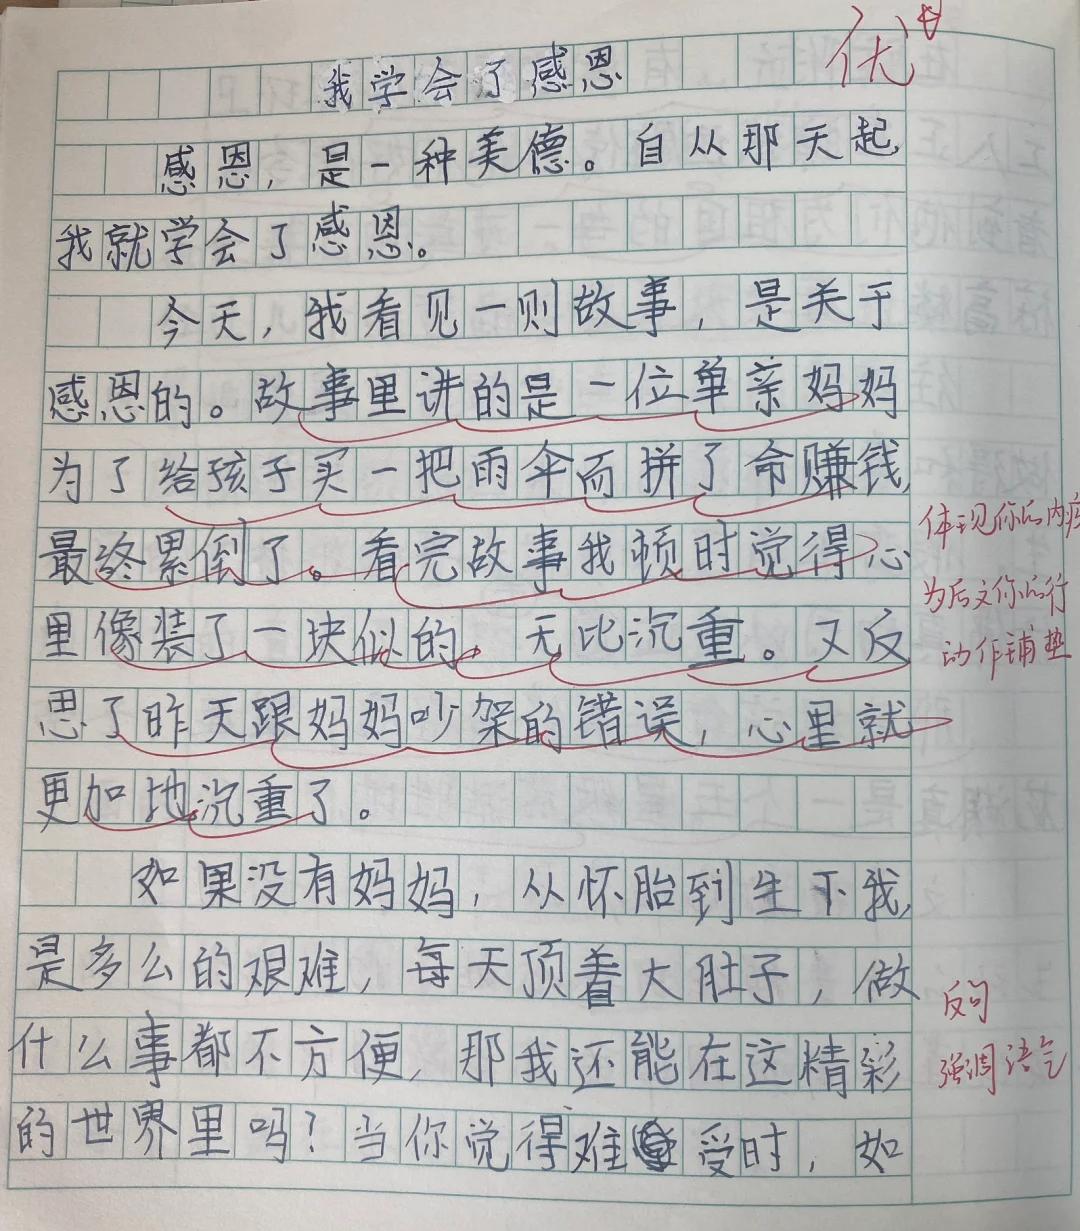 优+
我学会了感恩
感恩，是一种美德。自从那天起，
我就学会了感恩。
今天，我看见一则故事，是关于
感恩的。故事里讲的是一位单亲妈妈
为了给孩子买一把雨伞而拼了命赚钱，
最终累倒了。看完故事我顿时觉得心
里像装了一块似的。无比沉重。又反
思了昨天跟妈妈吵架的错误，心里就
更加地沉重了。
如果没有妈妈，从怀胎到生下我，
是多么的艰难，每天顶着大肚子，做
什么事都不方便，那我还能在这精彩
的世界里吗？当你觉得难受时，如
体现你的内疚
为后文你的行
动作铺垫
反句
强调语气